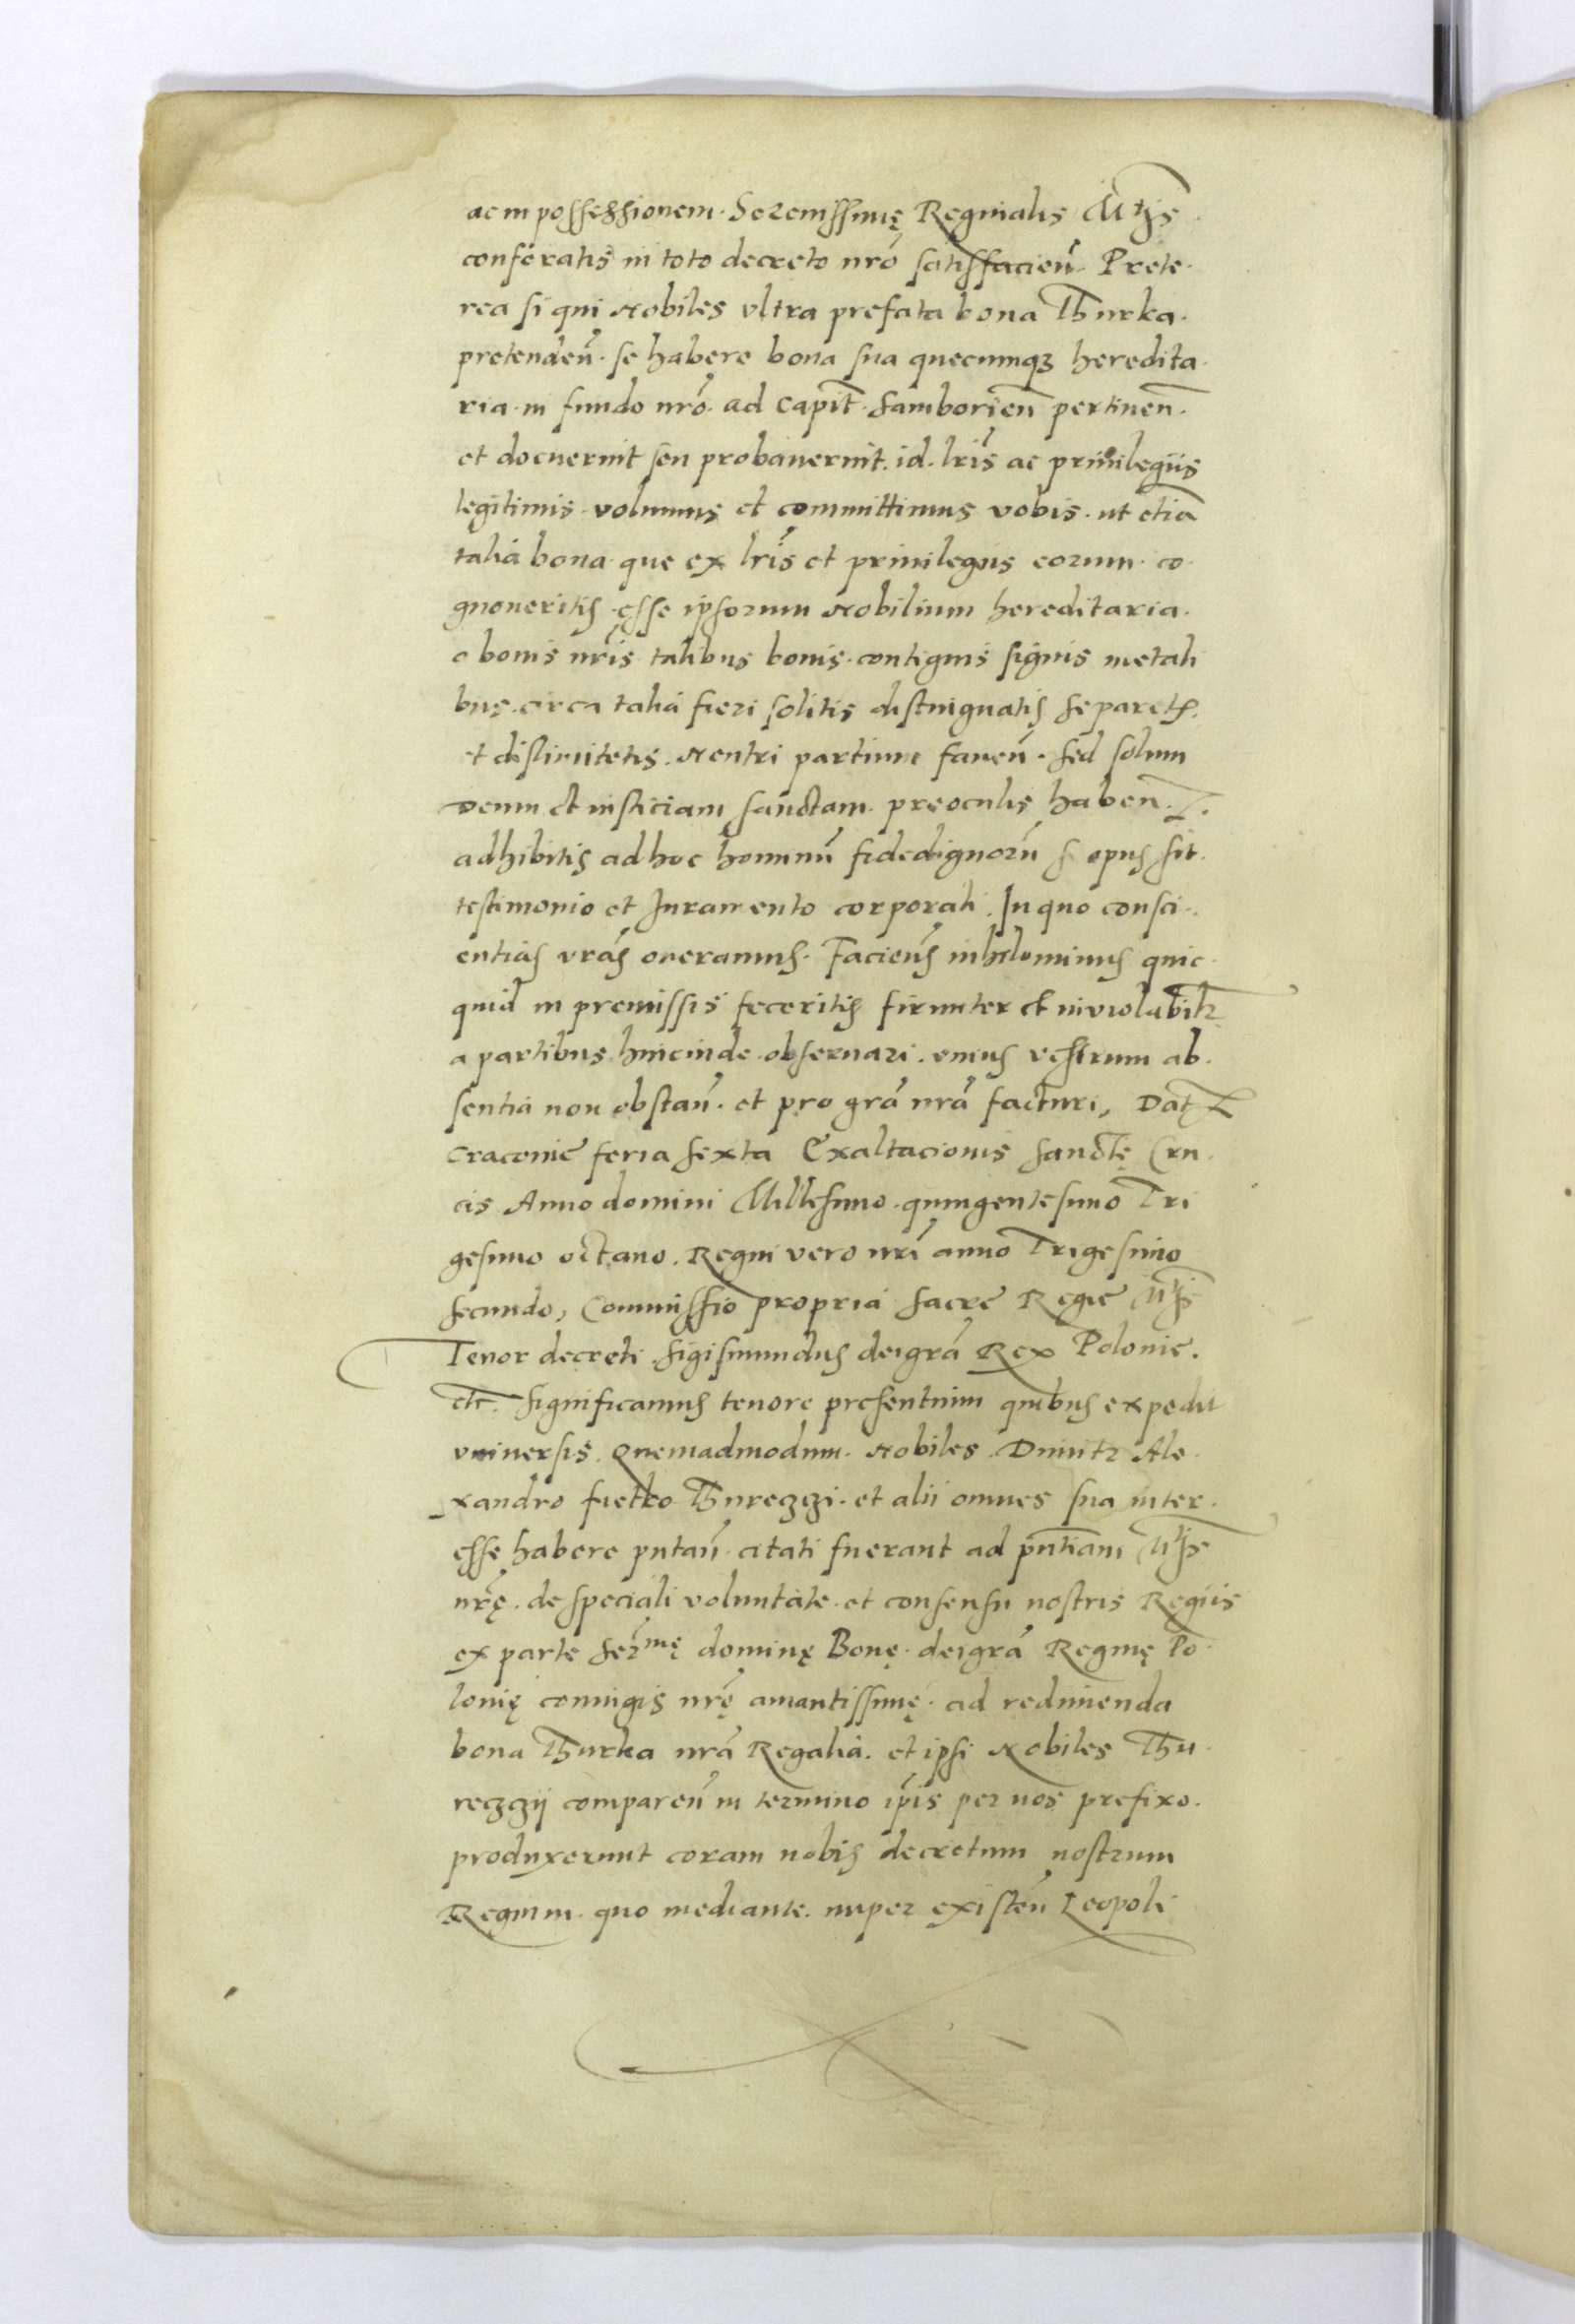 ac in possessionem. Serenissimę Reginalis Mtis
conferatis in toto decreto nrō satisfacieñ. Prete-
rea si qui Nobiles vltra prefata bona Thurka.
pretendeñ. se habere bona sua quecumqȝ heredita-
ria. in fundo nrō. ad capit̄. Samborieñ pertineñ.
et docuerint seu probauerint. id. lrīs ac priuilegiis
legitimis. volumus et committimus vobis. ut etiā
talia bona. que ex lrīs et priuilegiis eorum. co-
gnoueritis. esse ipsorum Nobilium hereditaria.
a bonis nrīs talibus bonis. contiguis signis metali
bus. circa talia fieri solitis distinguatis separetis.
et dislimitetis. Neutri partium faueñ. sed solum
deum et iusticiam sanctam. preoculis habeñ.
adhibitis ad hoc hominū fidedignorū si opus sit.
testimonio et Juramento corporali. In quo consci-
entias vrās oneramus. Facieñs nihilominus quic-
quid in premissis feceritis firmiter et inuiolabilr
a partibus hincinde. obseruari. vnius vestrum ab-
sentia non obstañ. et pro grā nrā facturi, Dat
Cracouie feria sexta Exaltacionis sanctę Cru-
cis Anno domini Millesimo. quingentesimo Tri
gesimo octauo. Regni vero nrī anno Trigesimo
secundo, Commissio propria sacre Regie Mtis
Tenor decreti. Sigismundus deigrā Rex Polonie.
etc. Significamus tenore presentium quibus expedit
vniuersis. Quemadmodum. Nobiles. Dmitr Ale-
xandro fietko Thureczzi. et alii omnes sua inter-
esse habere putañ. citati fuerant ad pn̄tiam Mtis
nrę. de speciali voluntate. et consensu nostris Regiis
ex parte Sermę dominę Bonę. deigrā Reginę Po-
lonię coniugis nrę amantissimę. ad redimenda
bona Thurka nrā Regalia. et ipsi Nobiles Thu-
reczzij compareñ in termino ip̄is per nos prefixo.
produxerunt coram nobis decretum nostrum
Regium. quo mediante. nuper existeñ Leopoli